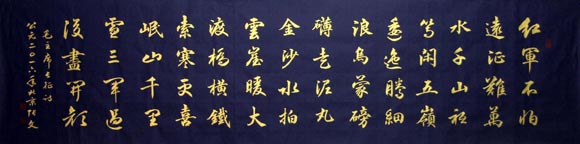 紅軍不怕
遠征難萬
水千山祗
等閑五嶺
逶迤騰細
浪烏蒙磅
礴走泥丸
金沙水拍
雲崖暖大
渡橋橫鐵
索寒更喜
岷山千里
雪三軍過
後盡開顏
毛主席长征詩
公元二〇一六年北京